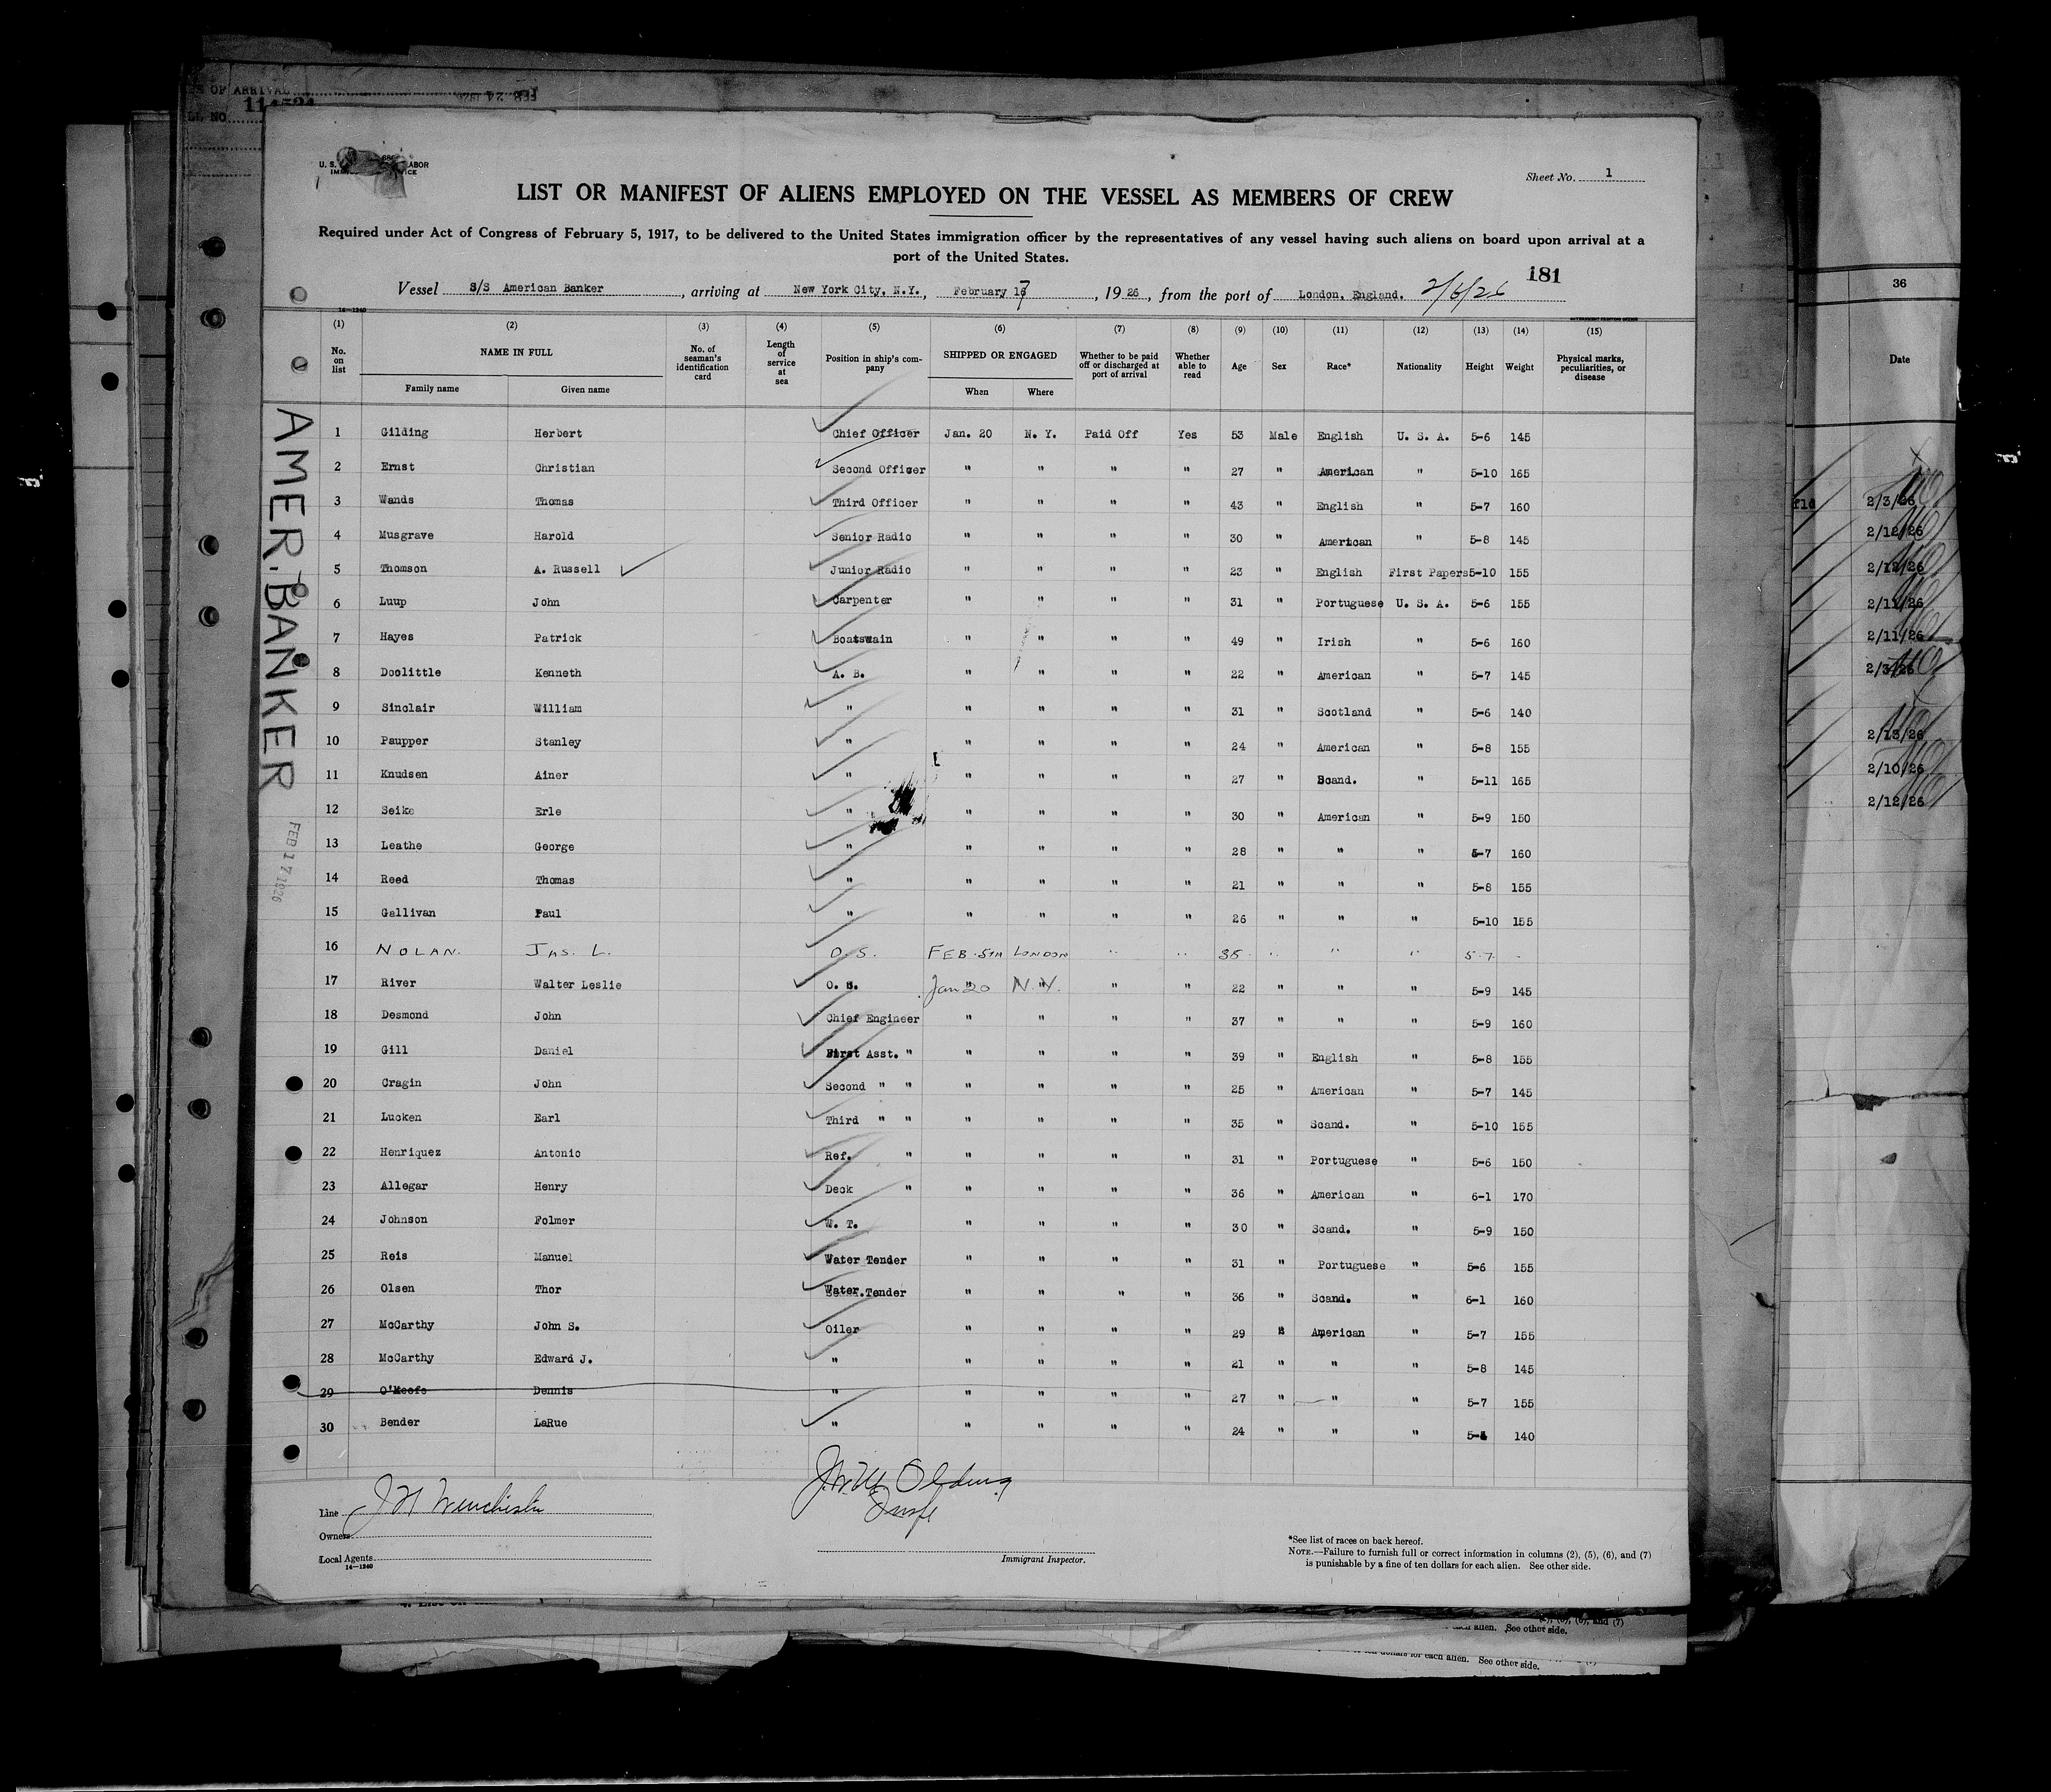 U. S. LABOR
Sheet No. 1
LIST OR MANIFEST OF ALIENS EMPLOYED ON THE VESSEL AS MEMBERS OF CREW
Required under Act of Congress of February 5, 1917, to be delivered to the United States immigration officer by the representatives of any vessel having such aliens on board upon arrival at a
port of the United States.
181
Vessel S/S American Banker, arriving at New York City, N.Y., February 17, 1926, from the port of London, England. 2/6/26
(1) (2) (3) (4) (5) (6) (7) (8) (9) (10) (11) (12) (13) (14) (15)
No. on list NAME IN FULL Family name Given name No. of seaman's identification card Length of service at sea Position in ship's company SHIPPED OR ENGAGED When Where Whether to be paid off or discharged at port of arrival Whether able to read Age Sex Race* Nationality Height Weight Physical marks, peculiarities, or disease
1 Gilding Herbert Chief Officer Jan. 20 N. Y. Paid Off Yes 53 Male English U. S. A. 5-6 145
2 Ernst Christian Second Officer " " " " 27 " American " 5-10 165
3 Wands Thomas Third Officer " " " " 43 " English " 5-7 160
4 Musgrave Harold Senior Radio " " " " 30 " American " 5-8 145
5 Thomson A. Russell Junior Radio " " " " 23 " English First Papers 5-10 155
6 Luup John Carpenter " " " " 31 " Portuguese U. S. A. 5-6 155
7 Hayes Patrick Boatswain " " " " 49 " Irish " 5-6 160
8 Doolittle Kenneth A. B. " " " " 22 " American " 5-7 145
9 Sinclair William " " " " " 31 " Scotland " 5-6 140
10 Paupper Stanley " " " " " 24 " American " 5-8 155
11 Knudsen Ainer " " " " " 27 " Scand. " 5-11 165
12 Seike Erle " " " " " 30 " American " 5-9 150
13 Leathe George " " " " " 28 " " " 5-7 160
14 Reed Thomas " " " " " 21 " " " 5-8 155
15 Gallivan Paul " " " " " 26 " " " 5-10 155
16 NOLAN. JAS. L. O. S. FEB. 5TH LONDON " " 35 " " " 5-7 -
17 River Walter Leslie O. S. Jan 20 N.Y. " " 22 " " " 5-9 145
18 Desmond John Chief Engineer " " " " 37 " " " 5-9 160
19 Gill Daniel First Asst. " " " " " 39 " English " 5-8 155
20 Cragin John Second " " " " " " 25 " American " 5-7 145
21 Lucken Earl Third " " " " " " 35 " Scand. " 5-10 155
22 Henriquez Antonio Ref. " " " " " 31 " Portuguese " 5-6 150
23 Allegar Henry Deck " " " " " 36 " American " 6-1 170
24 Johnson Folmer W. T. " " " " 30 " Scand. " 5-9 150
25 Reis Manuel Water Tender " " " " 31 " Portuguese " 5-6 155
26 Olsen Thor Water Tender " " " " 36 " Scand. " 6-1 160
27 McCarthy John S. Oiler " " " " 29 " American " 5-7 155
28 McCarthy Edward J. " " " " " 21 " " " 5-8 145
29 O'Keefe Dennis " " " " " 27 " " " 5-7 155
30 Bender LaRue " " " " " 24 " " " 140
AMER. BANKER
FEB 17 1926
Line
Owners
Local Agents
14-1240
Immigrant Inspector.
*See list of races on back hereof.
NOTE.—Failure to furnish full or correct information in columns (2), (5), (6), and (7)
is punishable by a fine of ten dollars for each alien. See other side.
36
Date
2/3/26
2/12/26
2/12/26
2/11/26
2/11/26
2/3/26
2/13/26
2/10/26
2/12/26
OF ARRIVAL
FEB 24
each alien. See other side.
ten dollars for each alien. See other side.